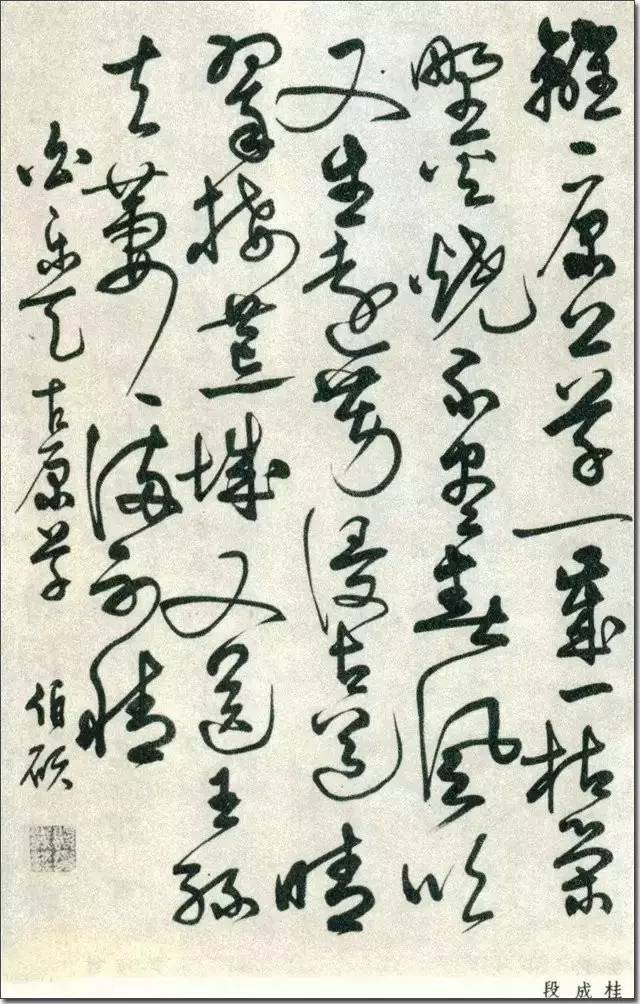 離〻原上草一歲一枯榮
野火燒不盡春風吹
又生遠芳侵古道晴
翠接荒城又送王孫
去萋〻滿別情
白樂天古原草 伯碩
段成桂